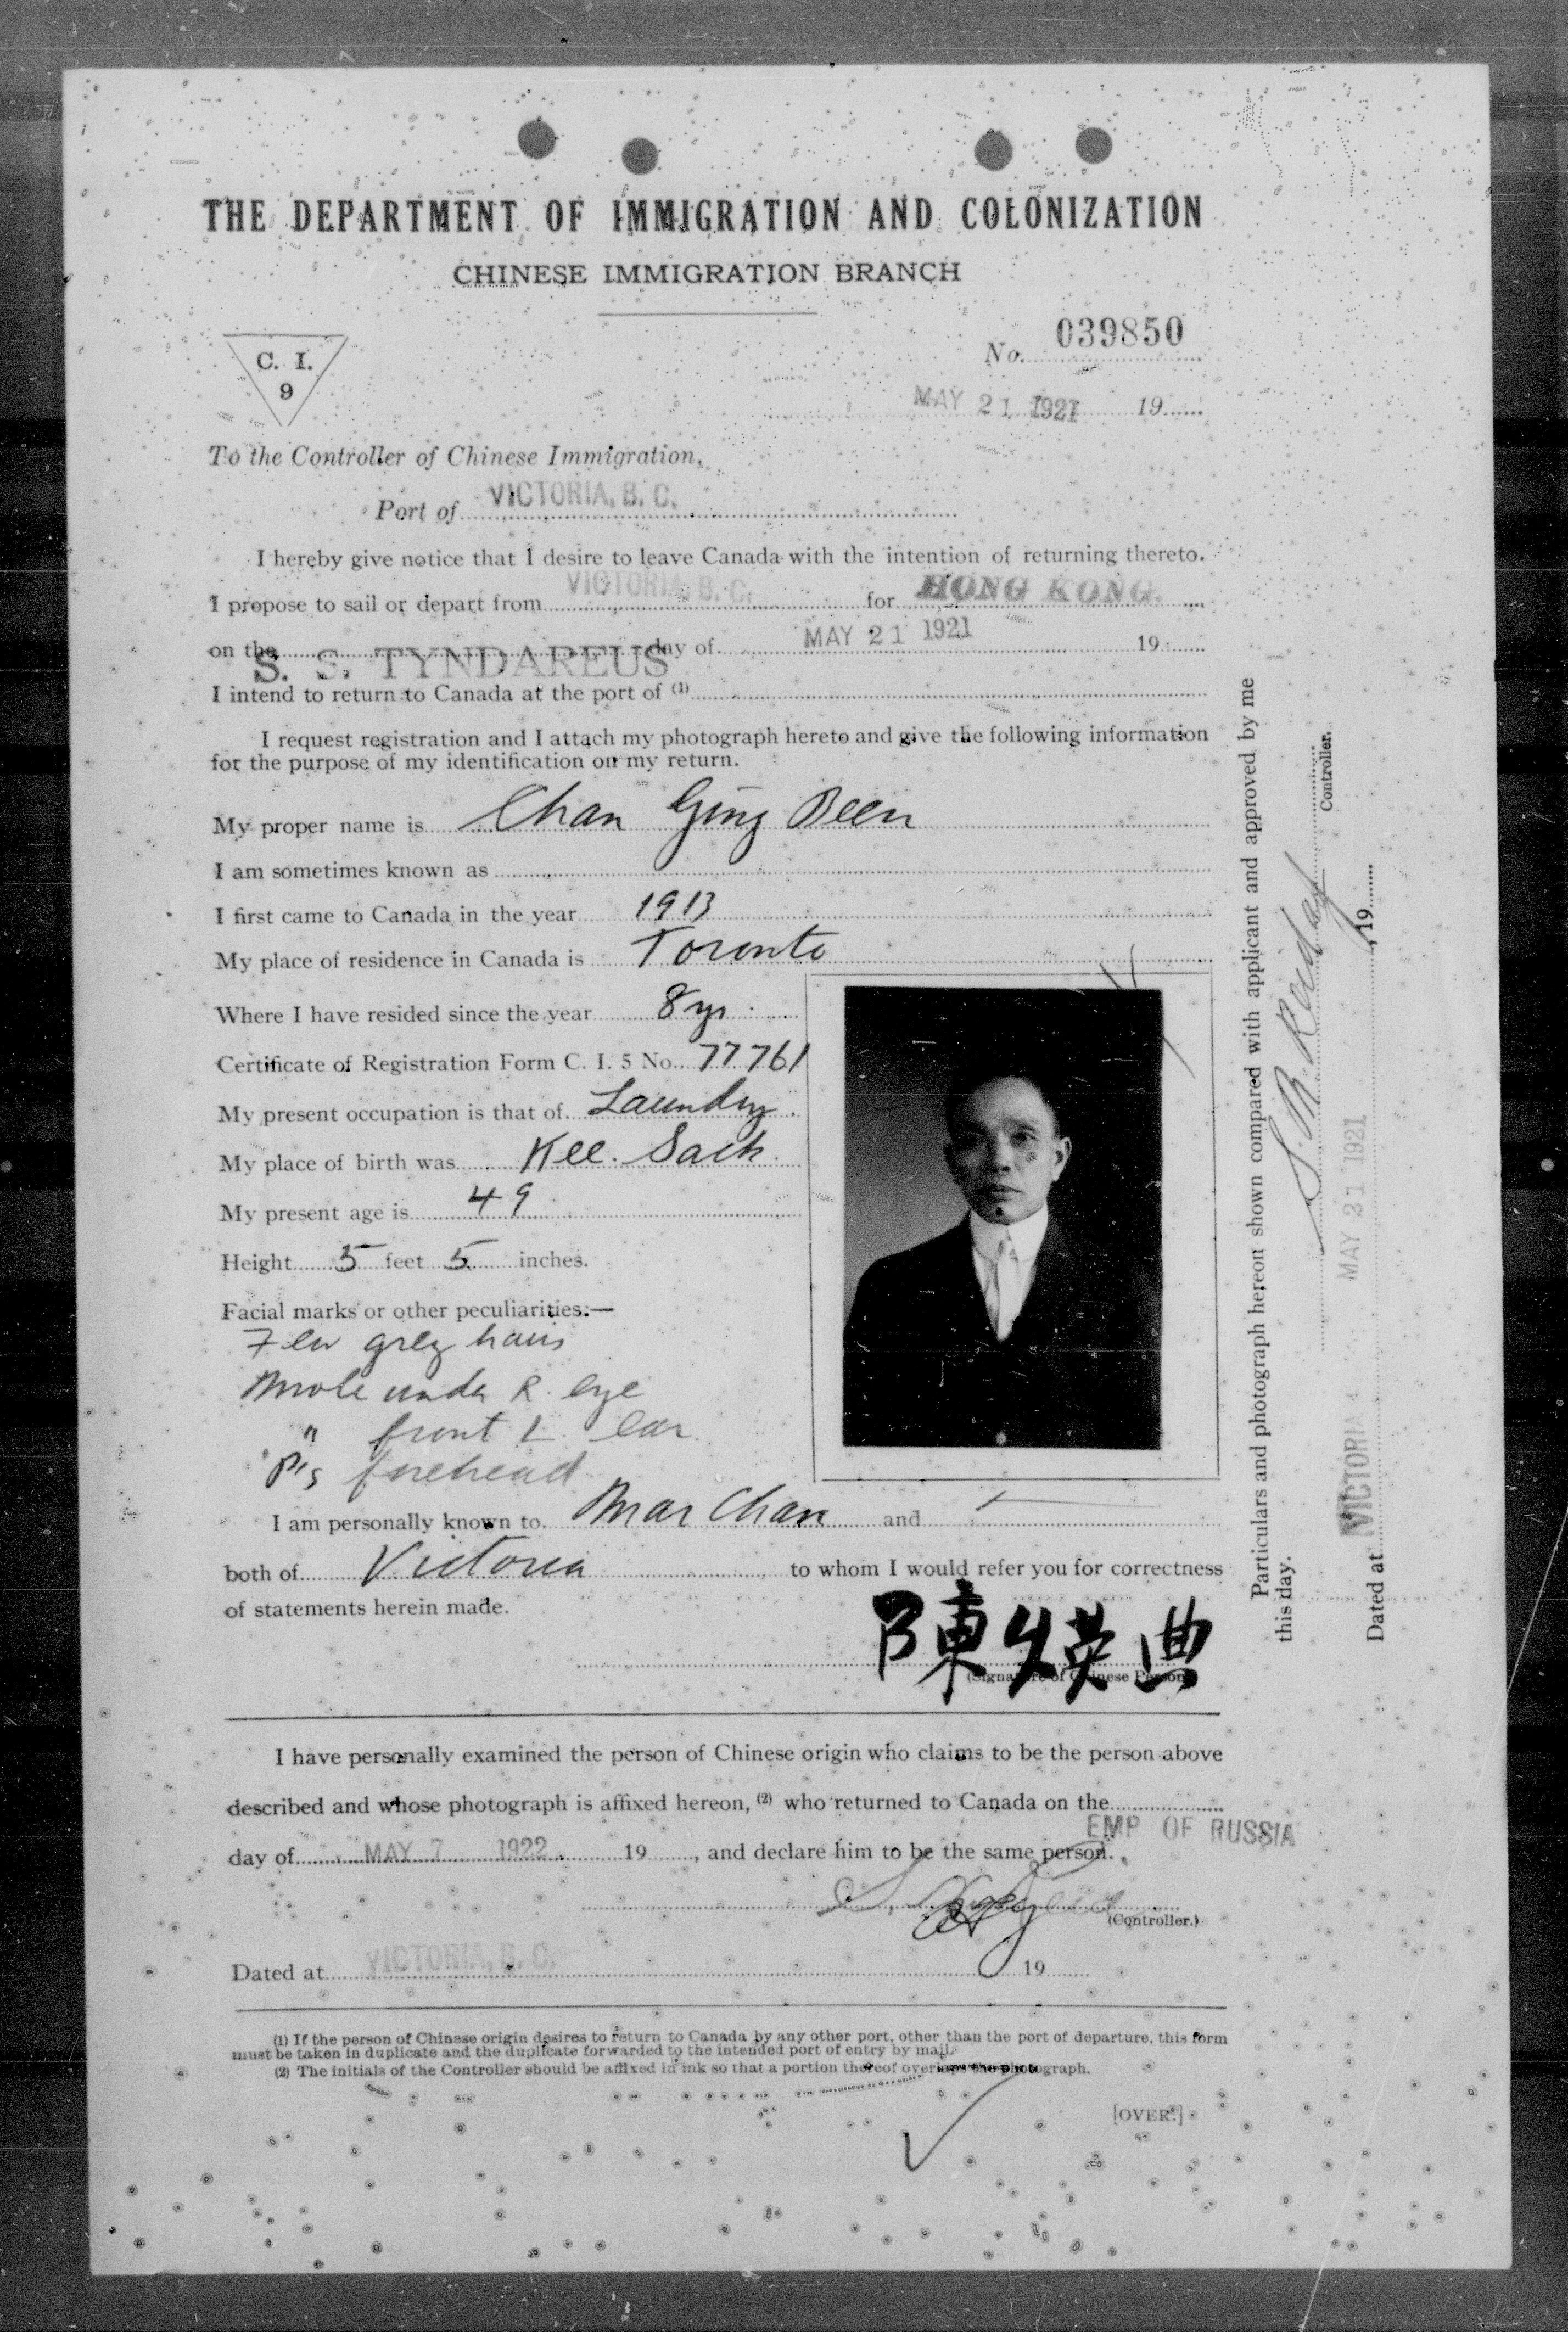 THE DEPARTMENT OF IMMIGRATION AND COLONIZATION
CHINESE IMMIGRATION BRANCH
C. I.
9
No. 039850
MAY 21 1921 19
To the Controller of Chinese Immigration,
Port of VICTORIA, B. C.
I hereby give notice that I desire to leave Canada with the intention of returning thereto.
I propose to sail or depart from VICTORIA, B. C. for HONG KONG.
on the day of MAY 21 1921 19
S. S. TYNDAREUS
I intend to return to Canada at the port of (1)
I request registration and I attach my photograph hereto and give the following information
for the purpose of my identification on my return.
My proper name is Chan Ging Been
I am sometimes known as
I first came to Canada in the year 1913
My place of residence in Canada is Toronto
Where I have resided since the year 8 yrs
Certificate of Registration Form C. I. 5 No. 77761
My present occupation is that of Laundry
My place of birth was Kee Sack
My present age is 49
Height 5 feet 5 inches.
Facial marks or other peculiarities:—
Few grey hairs
Mole under R. eye
" front L. ear
Pis forehead
I am personally known to Mar Chan and
both of Victoria to whom I would refer you for correctness
of statements herein made.
陳煐典
(Signature of Chinese Person)
I have personally examined the person of Chinese origin who claims to be the person above
described and whose photograph is affixed hereon, (2) who returned to Canada on the
EMP OF RUSSIA
day of MAY 7 1922 19 , and declare him to be the same person.
(Controller.)
Dated at VICTORIA, B. C. 19
(1) If the person of Chinese origin desires to return to Canada by any other port, other than the port of departure, this form
must be taken in duplicate and the duplicate forwarded to the intended port of entry by mail.
(2) The initials of the Controller should be affixed in ink so that a portion thereof overlaps the photograph.
[OVER.]
Particulars and photograph hereon shown compared with applicant and approved by me
this day.
Controller.
Dated at VICTORIA MAY 21 1921 , 19